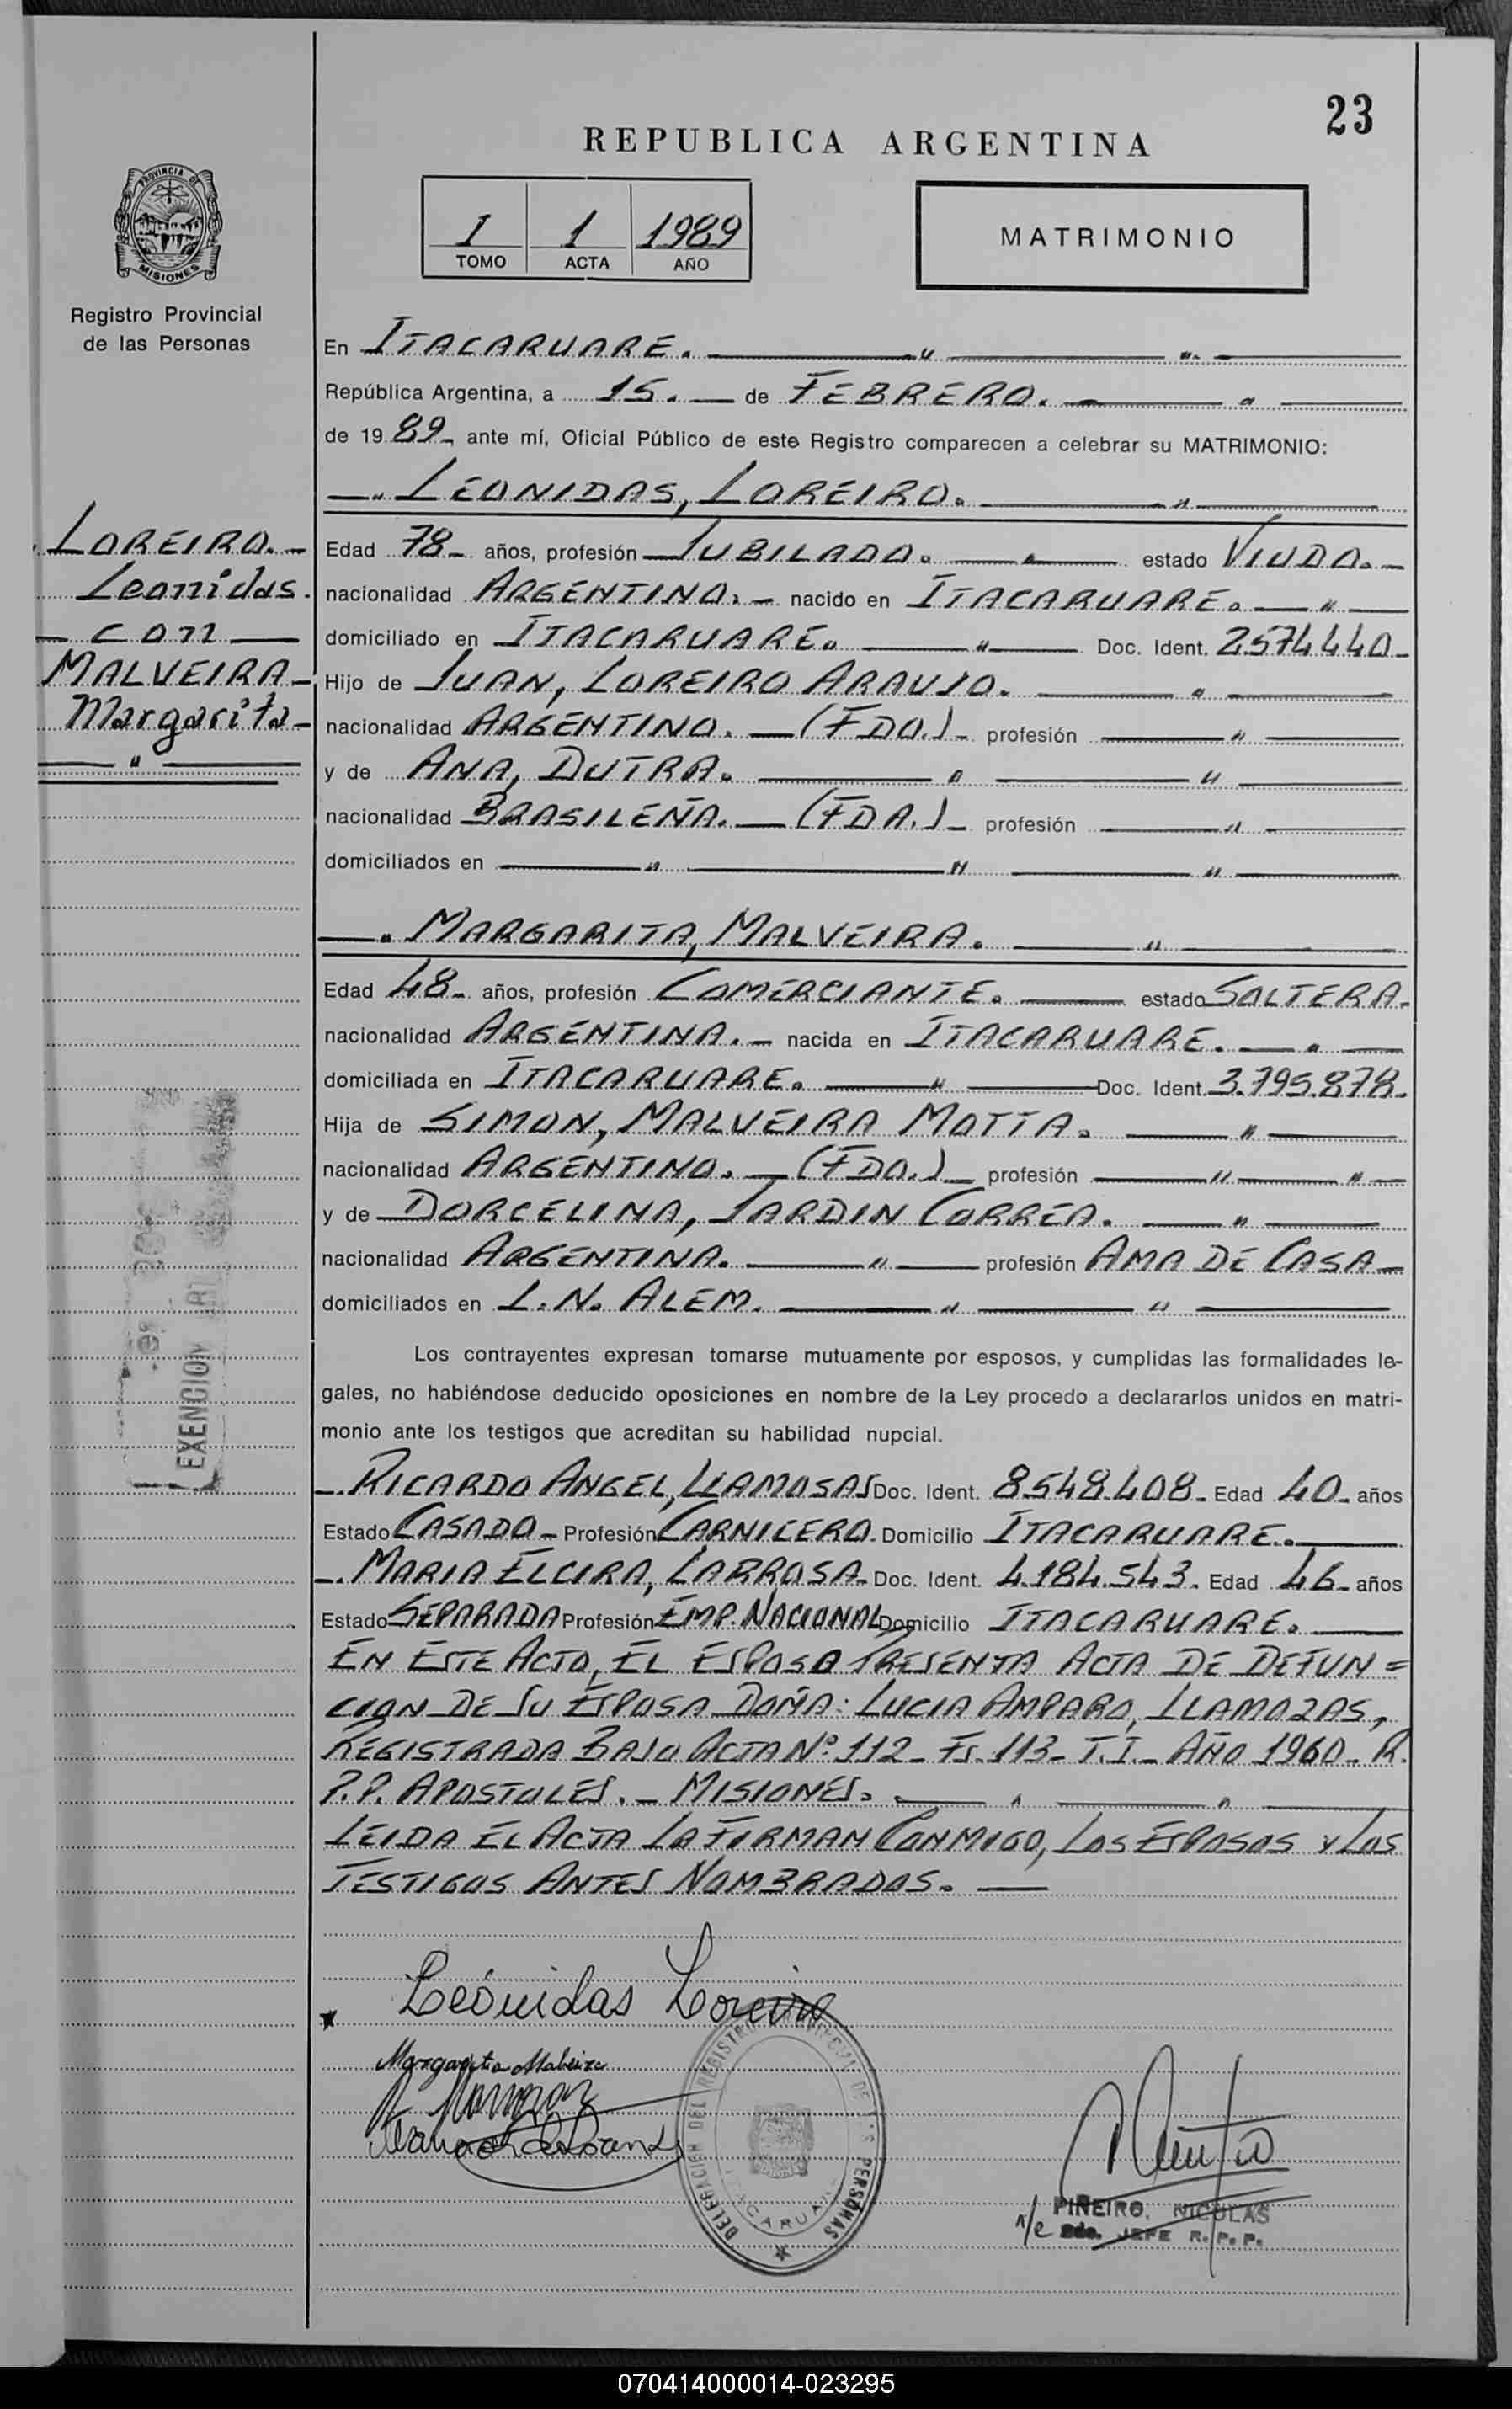 23
REPUBLICA ARGENTINA
I 1 1989
TOMO ACTA AÑO
MATRIMONIO
PROVINCIA DE
MISIONES
Registro Provincial
de las Personas
LOREIRO.
Leonidas.
con
MALVEIRA
Margarita
En ITACARUARE.
República Argentina, a 15. de FEBRERO.
de 19 89 ante mí, Oficial Público de este Registro comparecen a celebrar su MATRIMONIO:
LEONIDAS, LOREIRO.
Edad 78 años, profesión JUBILADO. estado VIUDO.
nacionalidad ARGENTINO. nacido en ITACARUARE.
domiciliado en ITACARUARE. Doc. Ident. 2574440
Hijo de JUAN, LOREIRO ARAUJO.
nacionalidad ARGENTINO. (FDO.) profesión
y de ANA, DUTRA.
nacionalidad BRASILEÑA. (FDA.) profesión
domiciliados en
MARGARITA, MALVEIRA.
Edad 48 años, profesión COMERCIANTE. estado SOLTERA.
nacionalidad ARGENTINA. nacida en ITACARUARE.
domiciliada en ITACARUARE. Doc. Ident. 3.795.878.
Hija de SIMON, MALVEIRA MOTTA.
nacionalidad ARGENTINO. (FDO.) profesión
y de DORCELINA, JARDIN CORREA.
nacionalidad ARGENTINA. profesión AMA DE CASA
domiciliados en L.N. ALEM.
EXENCION
Los contrayentes expresan tomarse mutuamente por esposos, y cumplidas las formalidades le-
gales, no habiéndose deducido oposiciones en nombre de la Ley procedo a declararlos unidos en matri-
monio ante los testigos que acreditan su habilidad nupcial.
RICARDO ANGEL, LLAMOSAS Doc. Ident. 8.548.408. Edad 40 años
Estado CASADO Profesión CARNICERO. Domicilio ITACARUARE.
MARIA ELCIRA, LARROSA Doc. Ident. 4.184.543. Edad 46 años
Estado SEPARADA Profesión EMP. NACIONAL Domicilio ITACARUARE.
EN ESTE ACTO, EL ESPOSO PRESENTA ACTA DE DEFUN=
CION DE SU ESPOSA DOÑA: LUCIA AMPARO, LLAMOZAS,
REGISTRADA BAJO ACTA Nº 112 - Fs. 113 - T.I. - AÑO 1960 - R.
P.P. APOSTOLES. - MISIONES.
LEIDA EL ACTA LA FIRMAN CONMIGO, LOS ESPOSOS Y LOS
TESTIGOS ANTES NOMBRADOS.
Leónidas Loreiro
Margarita Malveira
DELEGACION DEL REGISTRO PROVINCIAL DE LAS PERSONAS
PIÑEIRO, NICOLAS
JEFE R. P. P.
070414000014-023295